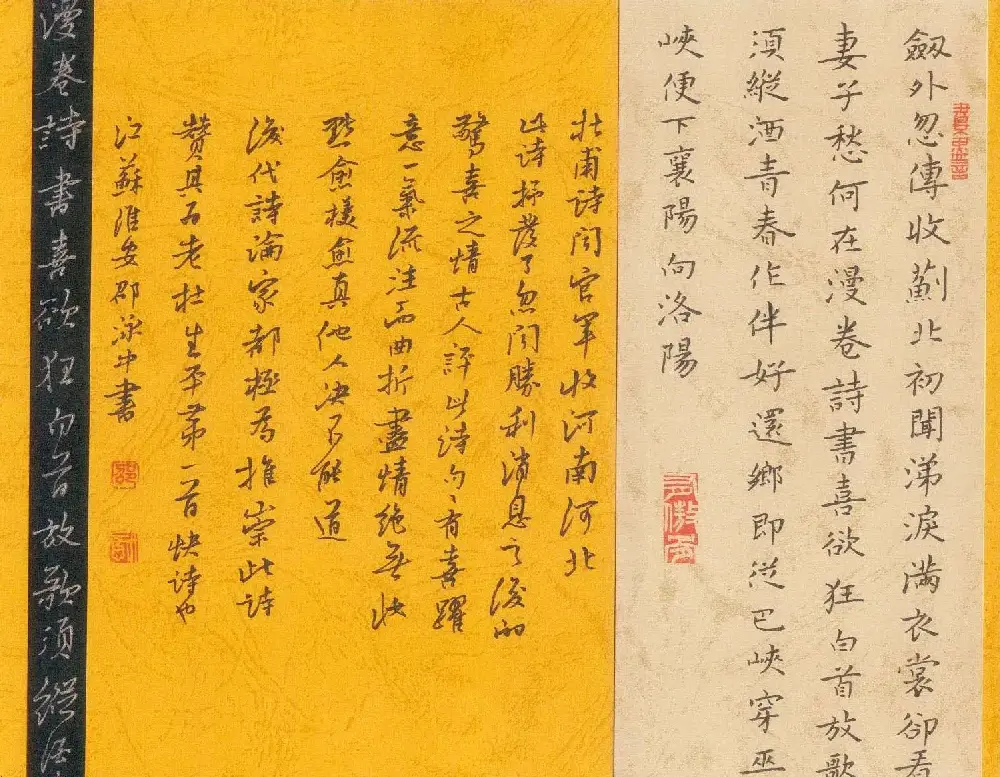 劔外忽傳收薊北初聞涕淚满衣裳卻看
妻子愁何在漫卷詩書喜欲狂白首放歌
須縱酒青春作伴好還鄉即從巴峽穿巫
峽便下襄陽向洛陽
杜甫诗闻官军收河南河北
此诗抒發了忽闻勝利消息之後的
驚喜之情古人評此诗句々有喜躍
意一氣流注而曲折盡情绝無妆
點愈樸愈真他人决不能道
後代詩論家都極為推崇此詩
赞其为老杜生平第一首快诗也
江蘇淮安邵泳中書
漫卷詩書喜欲狂白首放歌須縱酒